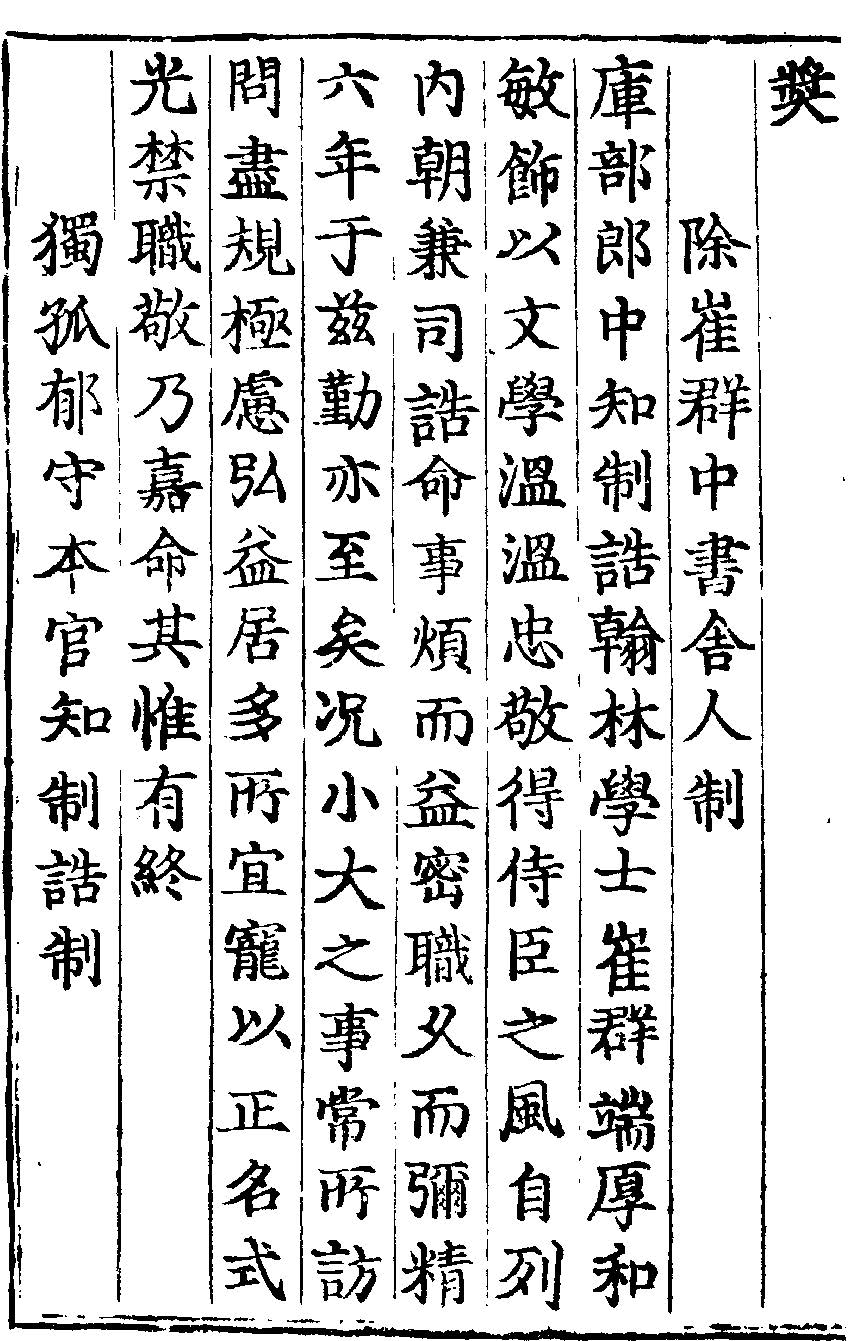 奬
除崔群中書舍人制
庫部郎中知制誥翰林學士崔群端厚和
敏飾以文學溫溫忠敬得侍臣之風自列
内朝兼司誥命事煩而益密職乆而彌精
六年于兹勤亦至矣况小大之事常所訪
問盡規極慮弘益居多所宜寵以正名式
光禁職敬乃嘉命其惟有終
獨孤郁守本官知制誥制